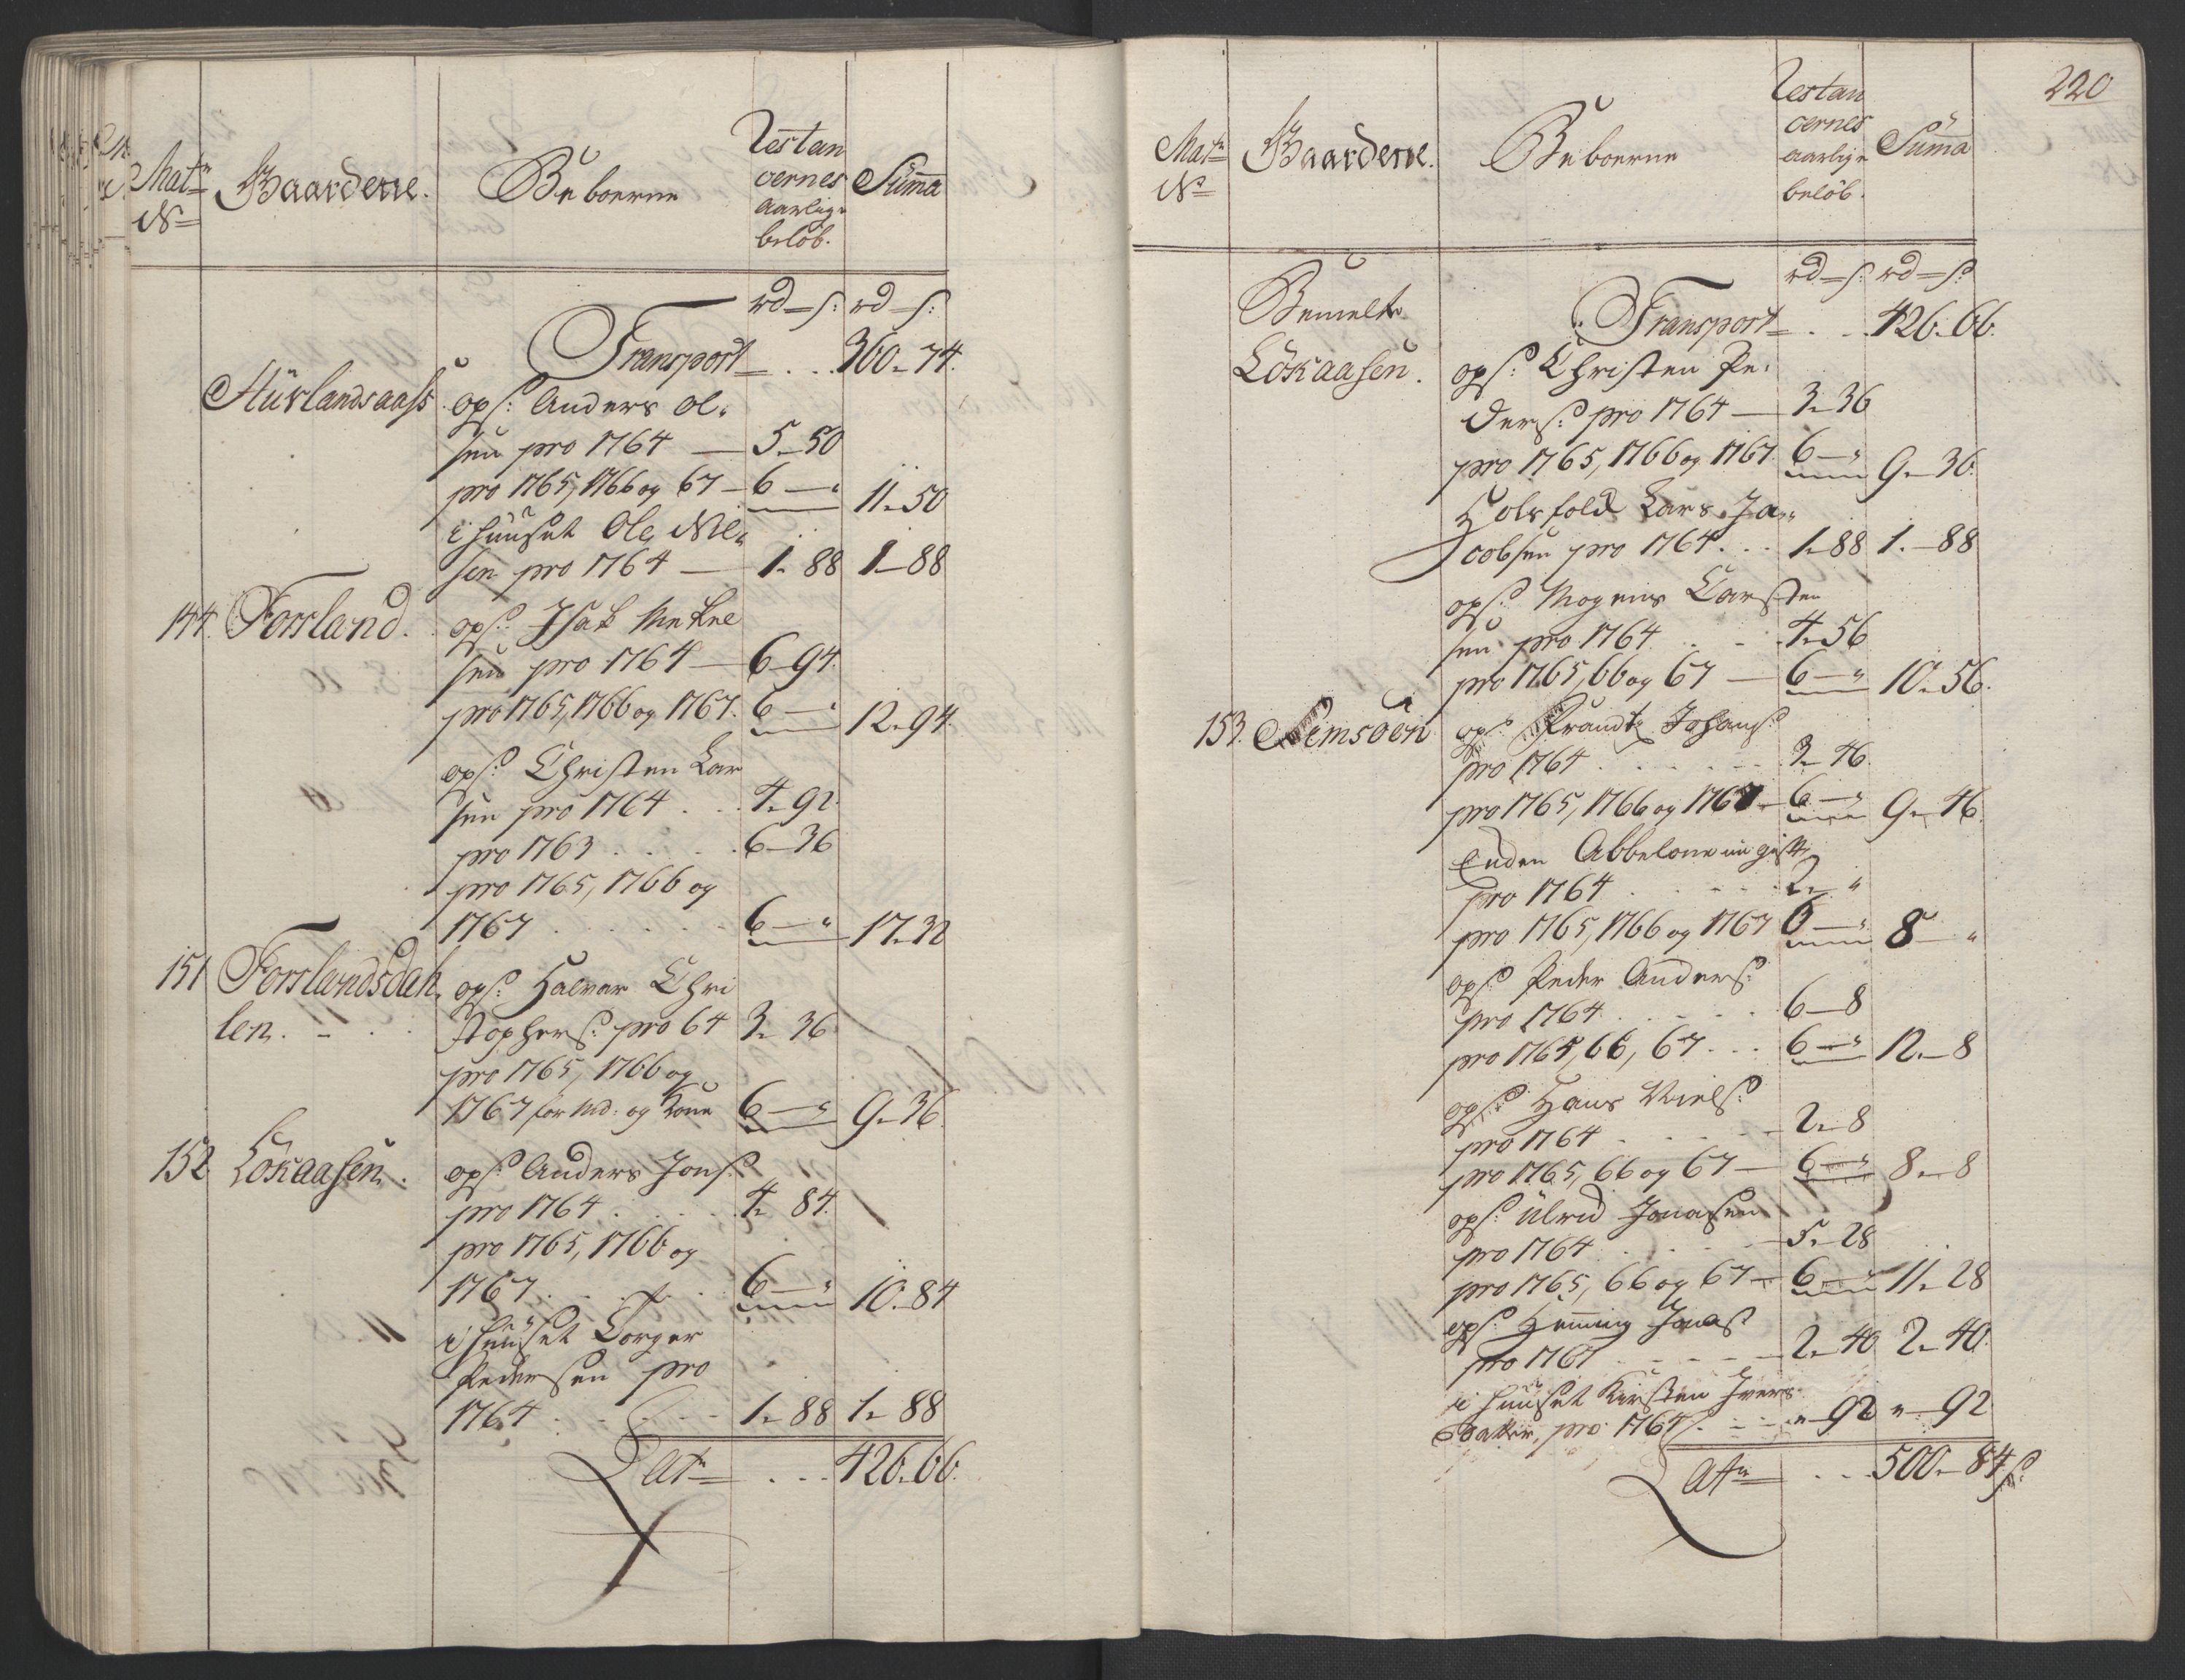 Mat:
No
Gaarderne.
Beboerne
Restan
cernes
aarlige
beløb.
Summa
rd – s: rd – s:
Transport . . . 360 – 74.
Hürlandsaass ops: Anders Ol:
sen pro 1764 — 5 – 50
pro 1765, 1766 og 67 – 6 – " 11 – 50
i huuset Ole Niel
sen pro 1764 — 1 – 88 1 – 88
144. Forsland. ops: Isak Mekel
sen pro 1764 — 6 – 94.
pro 1765, 1766 og 1767. 6 – " 12 – 94.
ops: Christen Lar
sen pro 1764 . . 4 – 92.
pro 1763 . . . . 6 – 36
pro 1765, 1766 og
1767 . . . . . . 6 – " 17 – 32
151 Forslandsdah ops: Halvar Chri
len. – . . stophers: pro 64 3 – 36
pro 1765, 1766 og
1767 for md: og Kone 6 – " 9 – 36.
152 Lökaasen. ops: Anders Jons:
pro 1764 . . . . . 4 – 84.
pro 1765, 1766 og
1767 . . . . . 6 – " 10 – 84
i huuset Torger
Pedersen pro
1764 . . . . . 1 – 88 1 – 88
Lat: . . . 426 – 66.
220
Mat:
No
Gaarderne.
Beboerne
Restan
cernes
aarlige
beløb.
Summa
rd – s: rd – s:
Bemelte Transport . . . 426 – 66.
Lökaasen. ops: Christen Pe:
ders: pro 1764 — 3 – 36
pro 1765, 1766 og 1767 6 – " 9 – 36.
Holsfold Lars Ja:
cobsen pro 1764 . . . 1 – 88 1 – 88
ops: Mogens Carsten
sen pro 1764 . . – 4 – 56
pro 1765, 66 og 67 — 6 – " 10 – 56.
153. Semsöen ops: Frandtz Johans:
pro 1764 . . . . . . 3 – 46.
pro 1765, 1766 og 1767 – 6 – " 9 – 46.
Enken Abbelone ugift
pro 1764 . . . . . 2 – "
pro 1765, 1766 og 1767 6 – " 8 – "
ops: Peder Anders:
pro 1764 . . . . . 6 – 8
pro 1765, 66, 67 . . . 6 – " 12 – 8
ops: Hans Niels:
pro 1764 . . . . . 2 – 8
pro 1765, 66 og 67 — 6 – " 8 – 8
ops: Ulrid Jonasen
pro 1764 . . . . . 5 – 28
pro 1765, 66 og 67 – 6 – " 11 – 28
ops: Heming Jonas
pro 1767 . . . . . 2 – 40 2 – 40.
i huuset Kirsten Ivers
datter, pro 1764 . . . " – 92 " – 92
Lat: . . . 500 – 84 s: